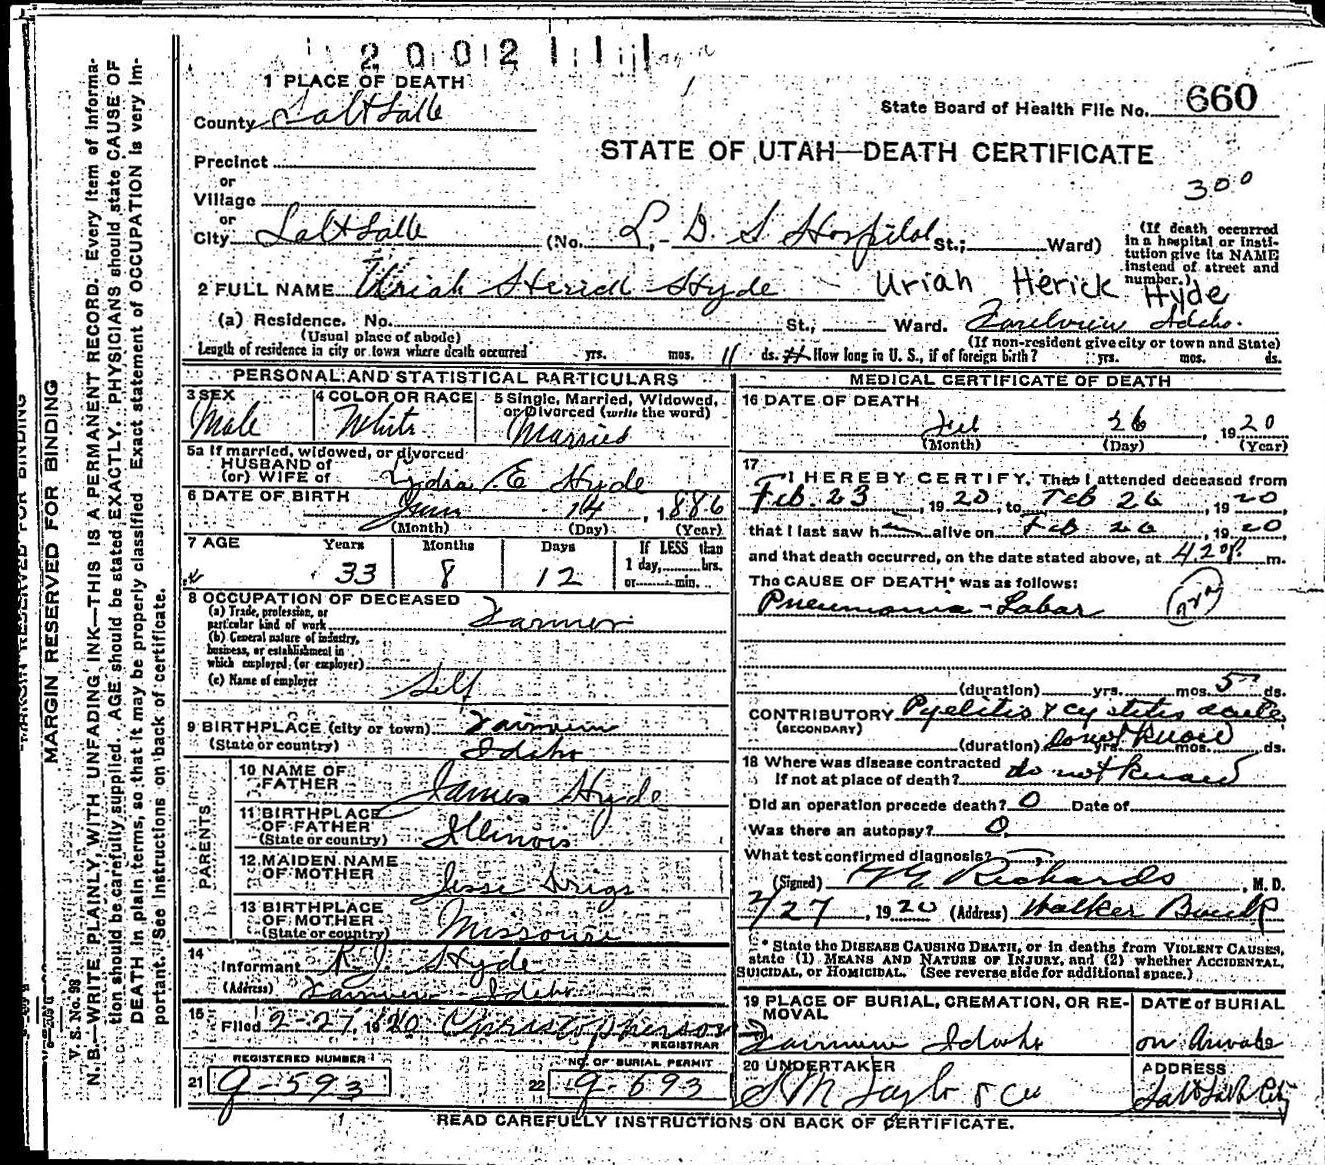 2 0 0 2 1 1 1
1 PLACE OF DEATH
County Salt Lake
State Board of Health File No. 660
STATE OF UTAH—DEATH CERTIFICATE
Precinct
or
Village
or
300
City Salt Lake (No. L. D. S Hospital St.; Ward)
(If death occurred in a hospital or institution give its NAME instead of street and number.)
2 FULL NAME Uriah Herick Hyde Uriah Herick Hyde
(a) Residence. No. St., Ward. Idaho.
(Usual place of abode) (If non-resident give city or town and State)
Length of residence in city or town where death occurred yrs. mos. 11 ds. How long in U. S., if of foreign birth? yrs. mos. ds.
PERSONAL AND STATISTICAL PARTICULARS
3 SEX Male
4 COLOR OR RACE White
5 Single, Married, Widowed, or Divorced (write the word) Married
5a If married, widowed, or divorced
HUSBAND of
(or) WIFE of Lydia E Hyde
6 DATE OF BIRTH 14, 1886
(Month) (Day) (Year)
7 AGE Years Months Days If LESS than
33 8 12 1 day, hrs.
or min.
8 OCCUPATION OF DECEASED
(a) Trade, profession, or
particular kind of work Farmer
(b) General nature of industry,
business, or establishment in
which employed (or employer)
(c) Name of employer Self
9 BIRTHPLACE (city or town) Fairview
(State or country) Idaho
PARENTS
10 NAME OF
FATHER James Hyde
11 BIRTHPLACE
OF FATHER
(State or country) Illinois
12 MAIDEN NAME
OF MOTHER Jesse Drigs
13 BIRTHPLACE
OF MOTHER
(State or country) Missouri
14
Informant R. J. Hyde
(Address) Fairview Idaho
15
Filed 2-27, 1920 Christopherson
REGISTRAR
REGISTERED NUMBER
21 9-593
NO. OF BURIAL PERMIT
22 9-593
MEDICAL CERTIFICATE OF DEATH
16 DATE OF DEATH
26, 1920
(Month) (Day) (Year)
17
I HEREBY CERTIFY, That I attended deceased from
Feb. 23, 1920, to Feb 26, 1920
that I last saw h alive on Feb 26, 1920
and that death occurred, on the date stated above, at 4 20 P. m.
The CAUSE OF DEATH* was as follows:
Pneumonia - Lobar
(duration) yrs. mos. 5 ds.
CONTRIBUTORY Pyelitis & cystitis acute
(SECONDARY)
(duration) Do not know yrs. mos. ds.
18 Where was disease contracted
If not at place of death? do not know
Did an operation precede death? 0 Date of
Was there an autopsy? 0
What test confirmed diagnosis?
(Signed) Richards, M. D.
2/27, 1920 (Address) Walker
* State the DISEASE CAUSING DEATH, or in deaths from VIOLENT CAUSES,
state (1) MEANS AND NATURE OF INJURY, and (2) whether ACCIDENTAL,
SUICIDAL, or HOMICIDAL. (See reverse side for additional space.)
19 PLACE OF BURIAL, CREMATION, OR REMOVAL
Fairview Idaho
DATE of BURIAL
on Arrival
20 UNDERTAKER
S M Taylor & Co
ADDRESS
Salt Lake City
READ CAREFULLY INSTRUCTIONS ON BACK OF CERTIFICATE.
MARGIN RESERVED FOR BINDING
MARGIN RESERVED FOR BINDING
V. S. No. 98
N. B.—WRITE PLAINLY, WITH UNFADING INK—THIS IS A PERMANENT RECORD. Every item of informa-
tion should be carefully supplied. AGE should be stated EXACTLY. PHYSICIANS should state CAUSE OF
DEATH in plain terms, so that it may be properly classified. Exact statement of OCCUPATION is very im-
portant. See instructions on back of certificate.